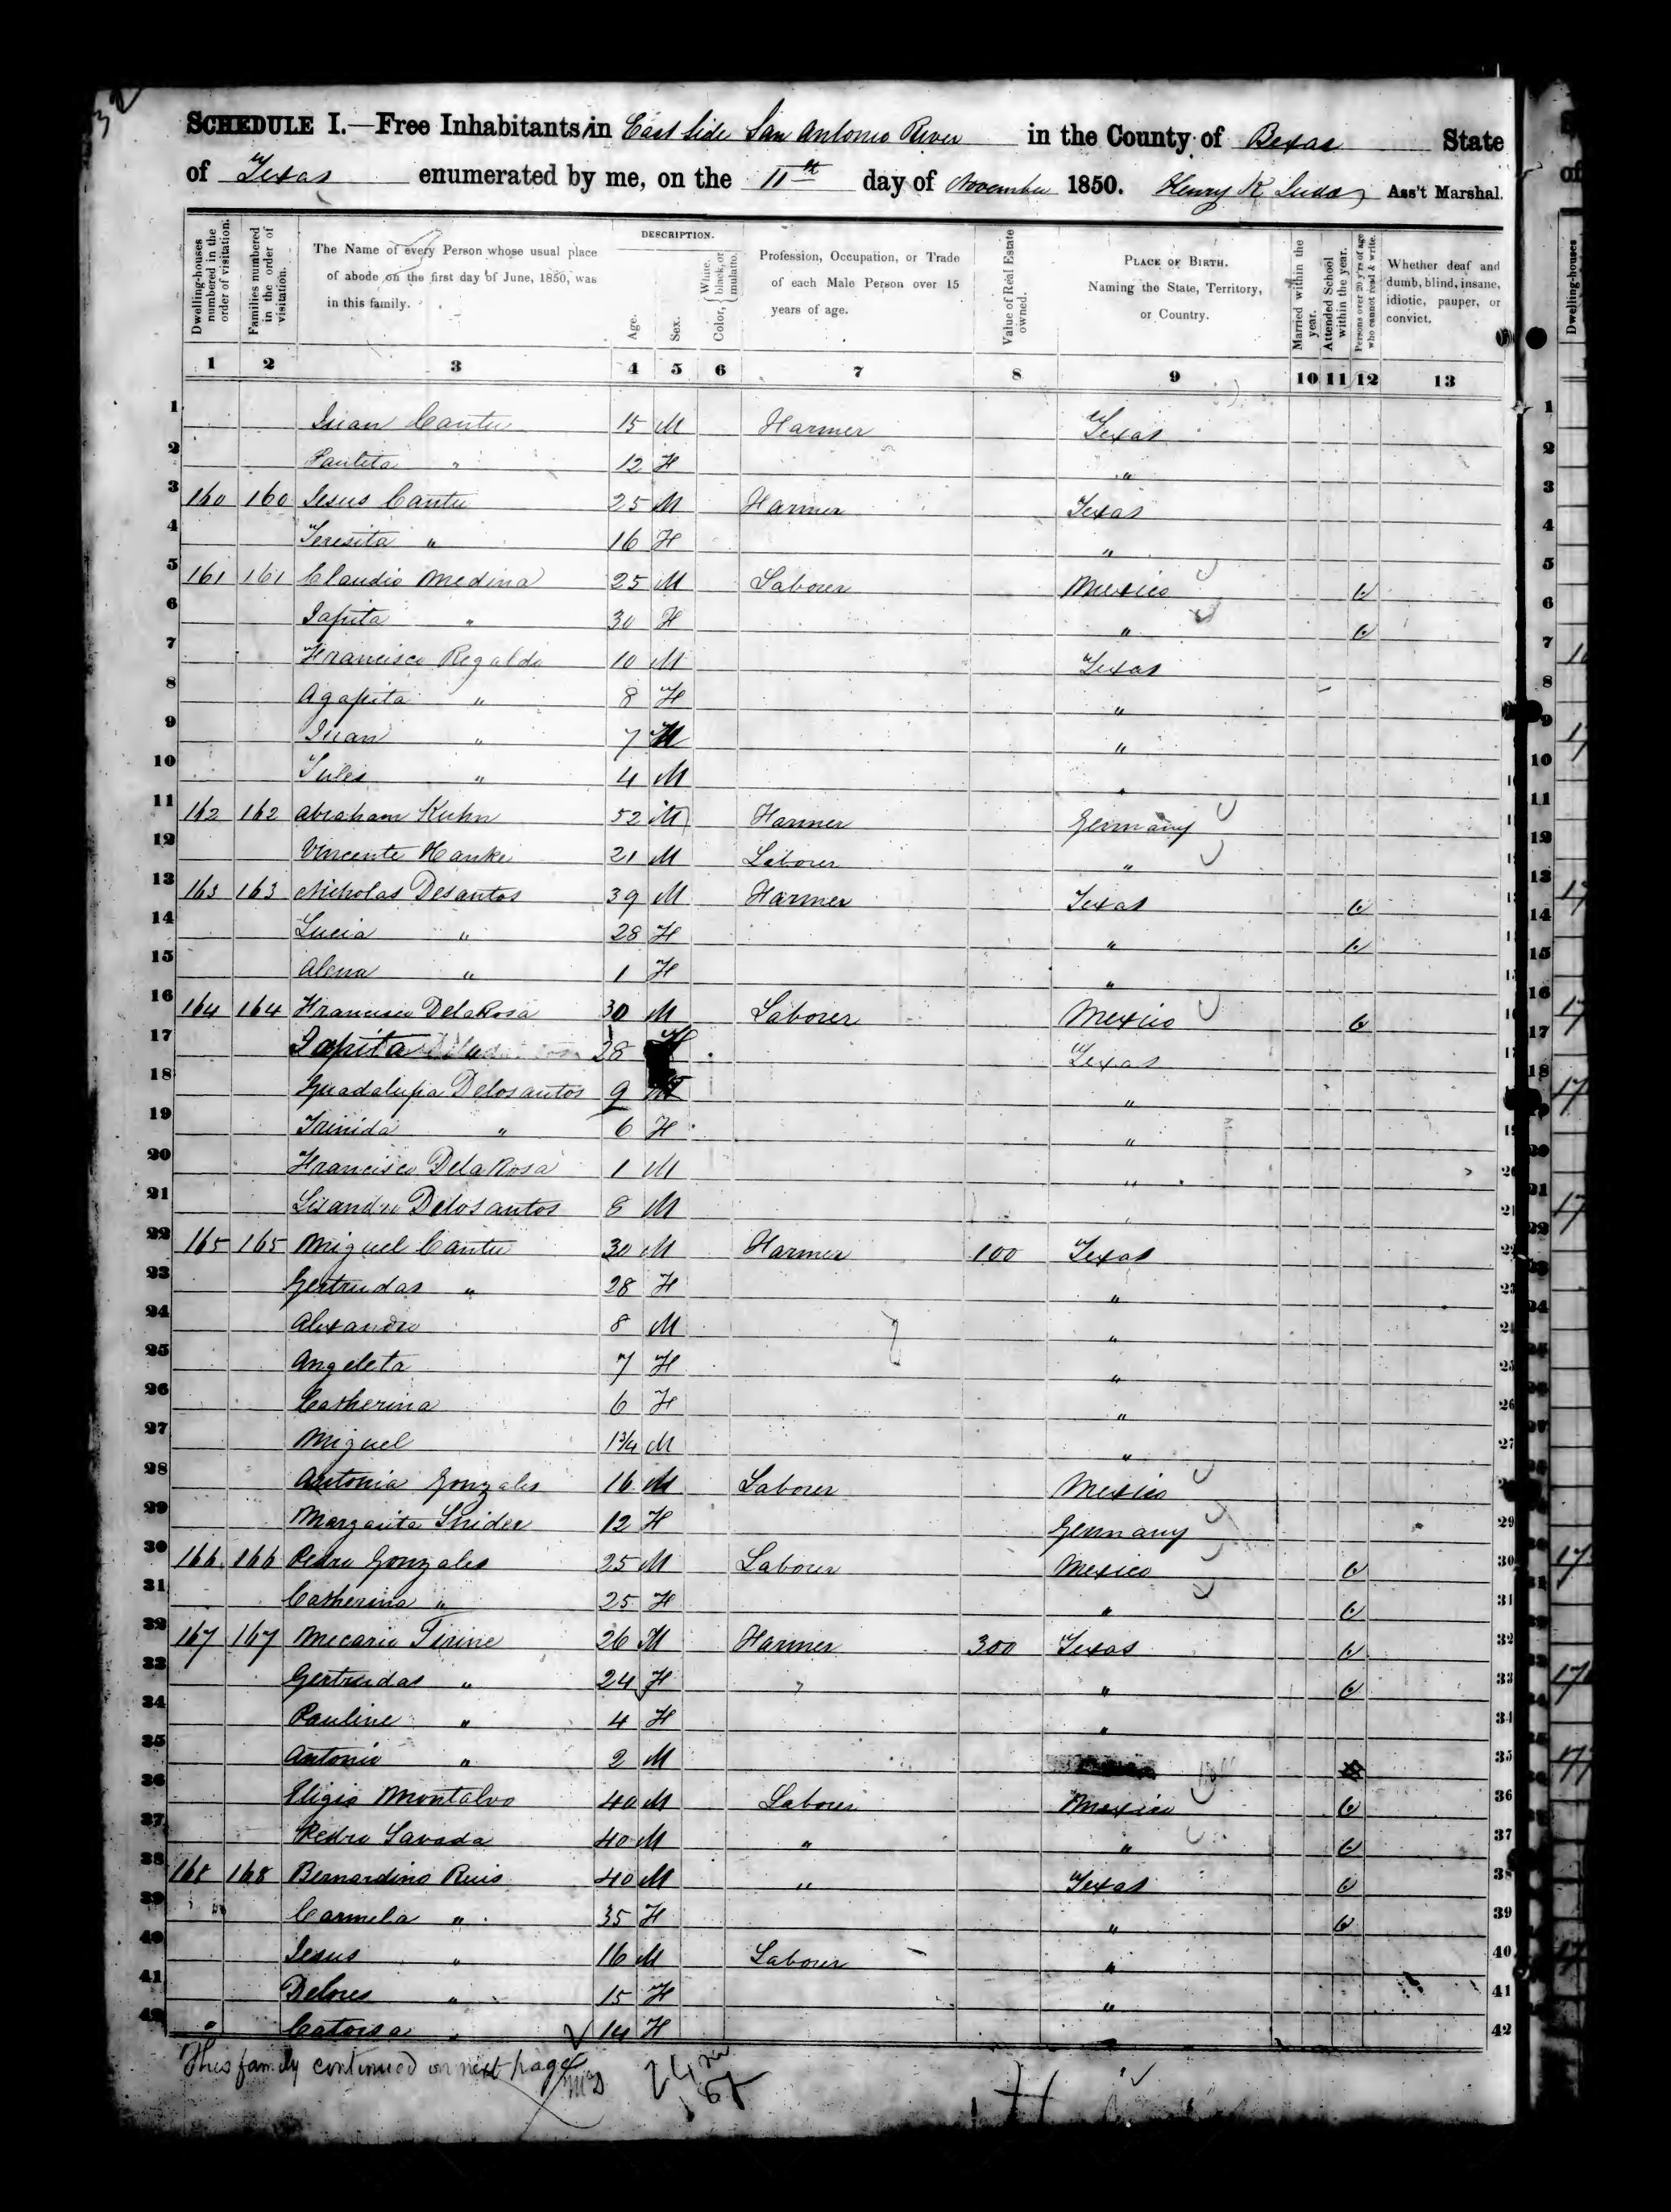 SCHEDULE I.—Free Inhabitants in East Side San Antonio River in the County of Bexar State
of Texas enumerated by me, on the 11th day of November 1850. Henry K Ass't Marshal.
Dwelling-houses numbered in the order of visitation.
Families numbered in the order of visitation.
The Name of every Person whose usual place of abode on the first day of June, 1850, was in this family.
DESCRIPTION.
Age.
Sex.
Color, { White, black, or mulatto.
Profession, Occupation, or Trade of each Male Person over 15 years of age.
Value of Real Estate owned.
PLACE OF BIRTH. Naming the State, Territory, or Country.
Married within the year.
Attended School within the year.
Persons over 20 y'rs of age who cannot read & write.
Whether deaf and dumb, blind, insane, idiotic, pauper, or convict.
1 2 3 4 5 6 7 8 9 10 11 12 13
1 Juan Cantu 15 M Farmer Texas
2 " 12 F "
3 160 160 Jesus Cantu 25 M Farmer Texas
4 Teresita " 16 F "
5 161 161 Claudio Medina 25 M Laborer Mexico
6 Japita " 30 F "
7 Francisco Regaldo 10 M Texas
8 Agapita " 8 F "
9 Juan " 7 M "
10 Jules " 4 M "
11 162 162 Abraham Kuhn 52 M Farmer Germany
12 Vincente Hanke 21 M Laborer "
13 163 163 Nicholas Desantos 39 M Farmer Texas
14 Lucia " 28 F "
15 Alena " 1 F "
16 164 164 Francisco DelaRosa 30 M Laborer Mexico
17 Japita 28 F Texas
18 Guadalupa Delosantos 9 "
19 Trinida " 6 F "
20 Francisco DelaRosa 1 M "
21 Lisandro Delosantos 8 M "
22 165 165 Miguel Cantu 30 M Farmer 100 Texas
23 Gertrudas " 28 F "
24 Alexandro 8 M "
25 Angeleta 7 F "
26 Catherina 6 F "
27 Miguel 1 3/4 M "
28 Antonia Gonzales 16 M Laborer Mexico
29 Margarita Snider 12 F Germany
30 166 166 Pedro Gonzales 25 M Laborer Mexico
31 Catherina " 25 F "
32 167 167 Mecario Tirine 26 M Farmer 300 Texas
33 Gertrudas " 24 F "
34 Pauline " 4 F "
35 Antonio " 2 M
36 Eligio Montalvo 40 M Laborer Mexico
37 Pedro Savada 40 M " "
38 168 168 Bernardino Ruis 40 M " Texas
39 Carmela " 35 F "
40 Jesus " 16 M Laborer "
41 Delores " 15 F "
42 Catorsa " 14 F "
This family continued on next page